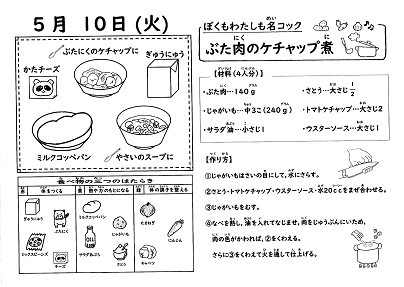 5月 10日(火)
ぶたにくのケチャップに
ぎゅうにゅう
かたチーズ
ミルクコッペパン
やさいのスープに
食べ物の三つのはたらき
体をつくる
熱や力のもとになる
体の調子を整える
ぎゅうにゅう
ぶたにく
ミックスビーンズ
チーズ
ミルクコッペパン
じゃがいも
サラダあぶら
さとう
たまねぎ
にんじん
キャベツ
ぼくもわたしも名コック
ぶた肉のケチャップ煮
【材料(4人分)】
・ぶた肉…140g
・さとう…大さじ1/2
・じゃがいも…中3こ(240g)
・トマトケチャップ…大さじ2
・サラダ油…小さじ1
・ウスターソース…大さじ1
【作り方】
①じゃがいもはさいの目にして、水にさらす。
②さとう・トマトケチャップ・ウスターソース・水20ccをまぜ合わせる。
③じゃがいもをむす。
④なべを熱し、油を入れてなじませ、肉をじゅうぶんにいため、
肉の色がかわれば、②をくわえる。
さらに③をくわえて火を通して仕上げる。